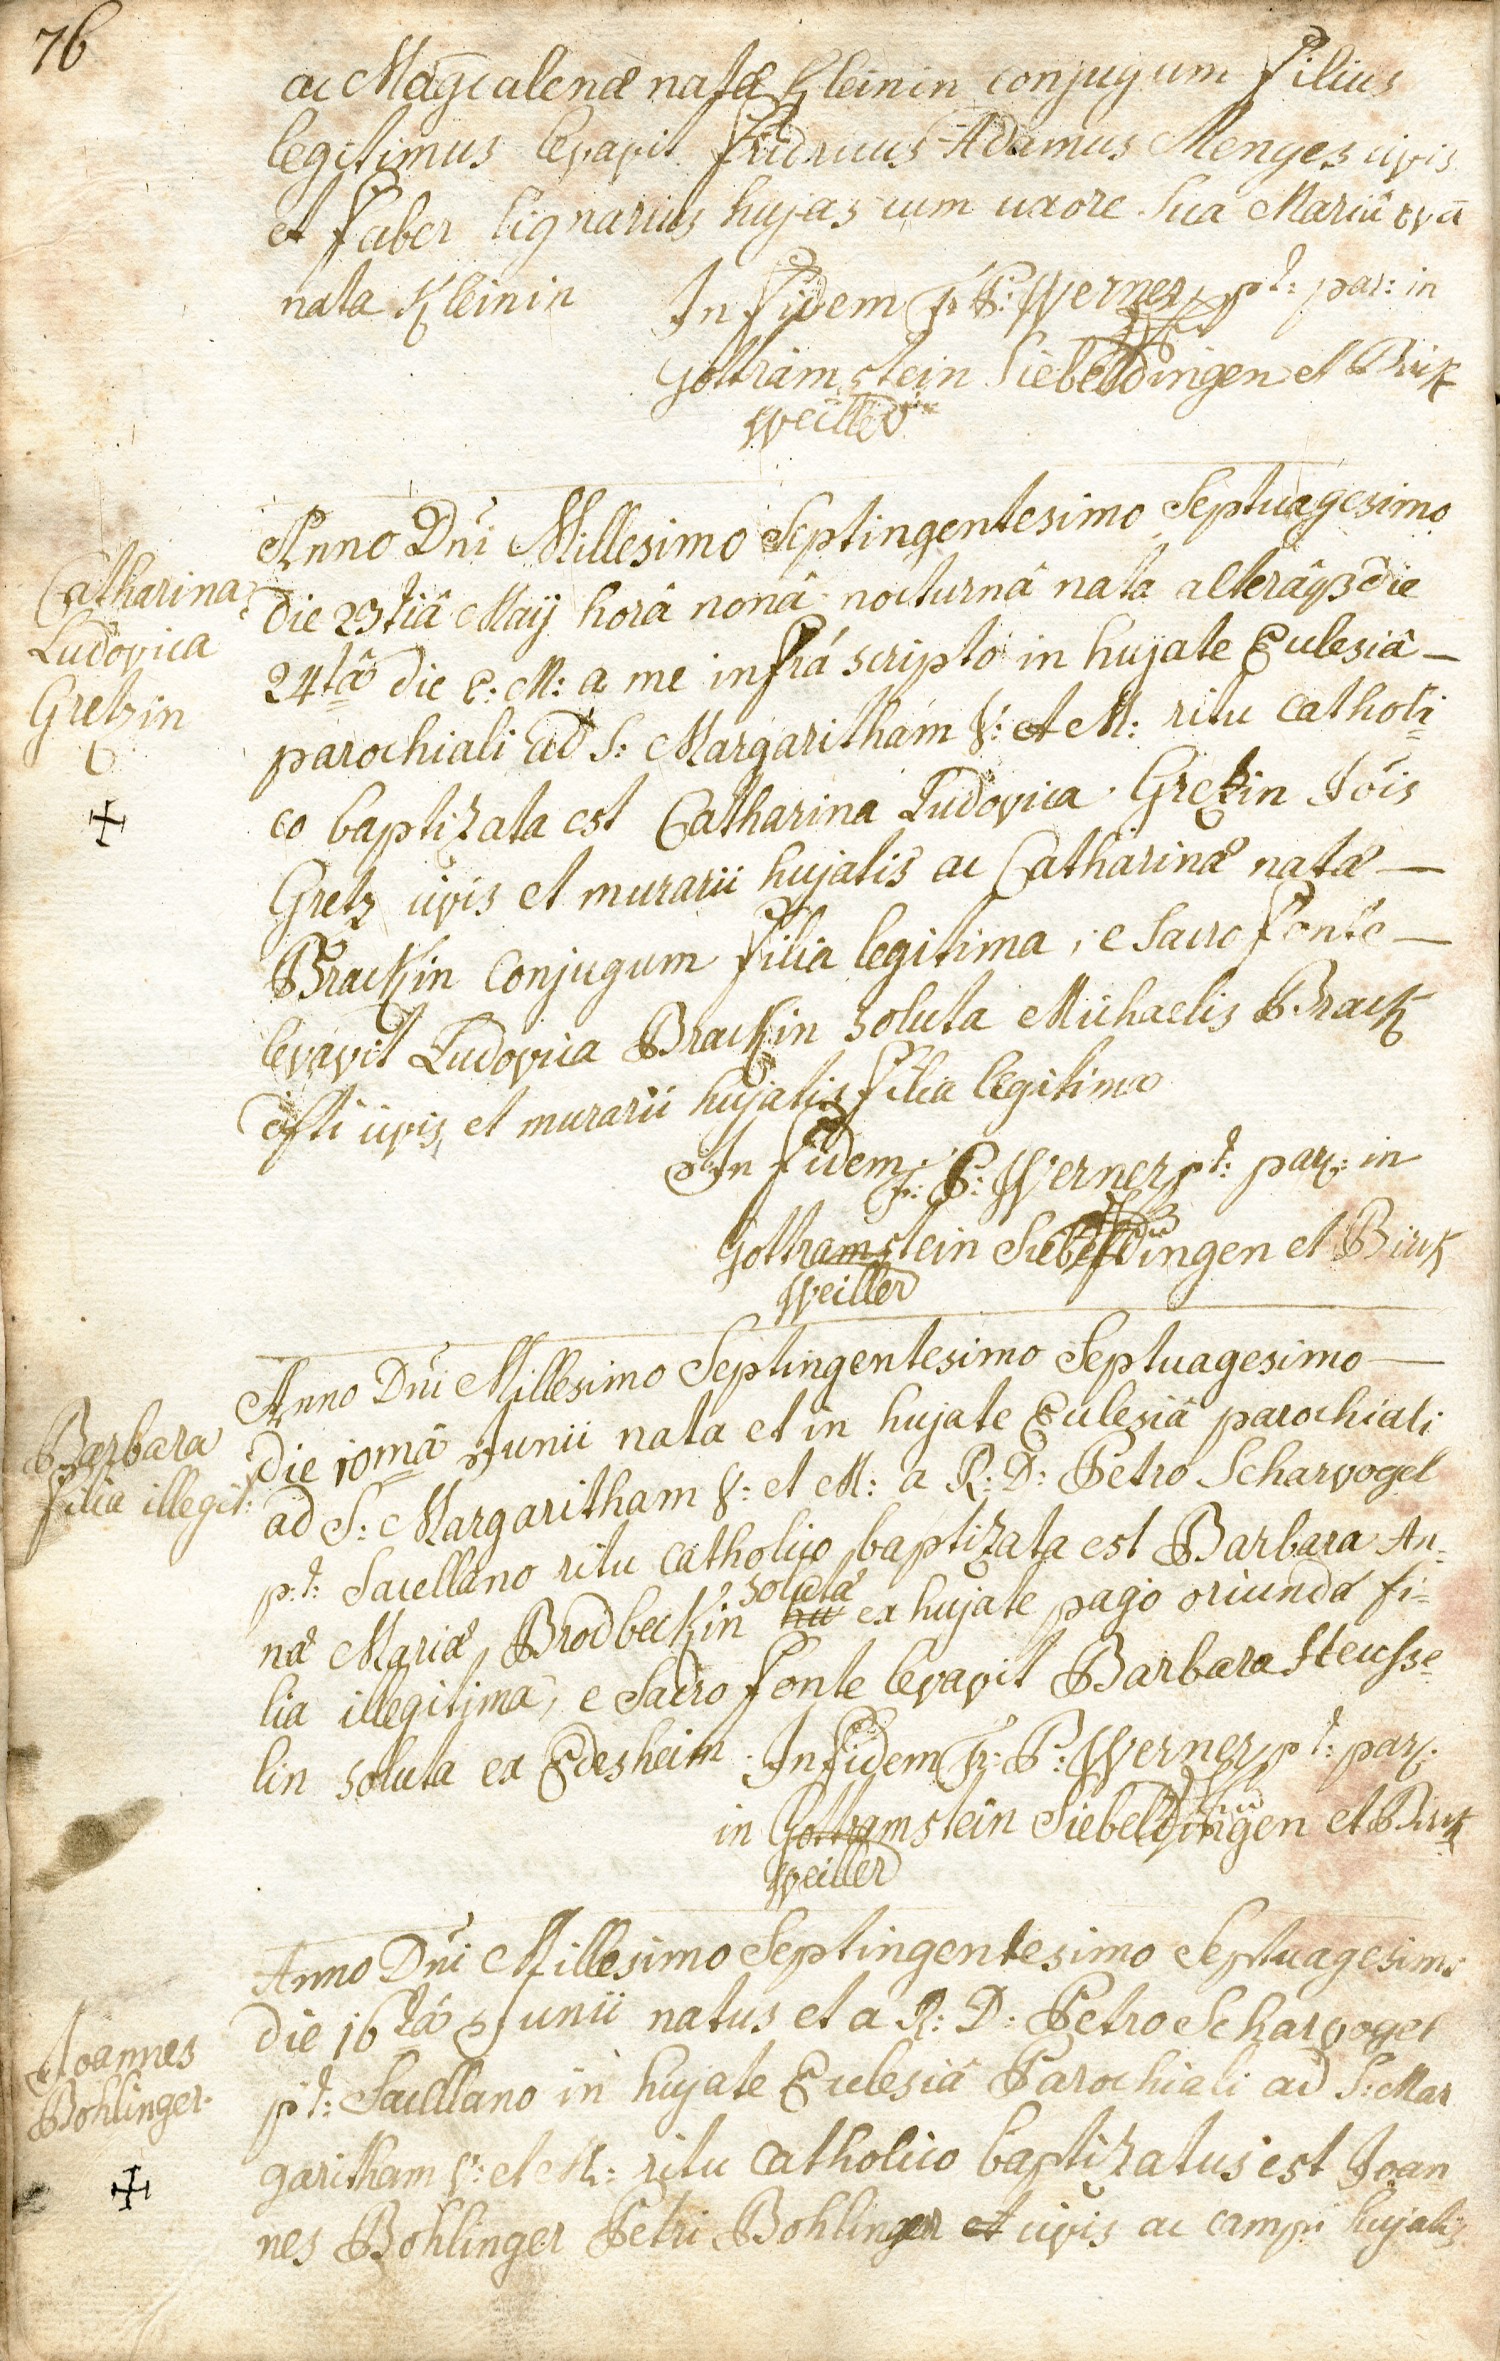 76
ac Magdalenæ natæ Kleinin conjugum filius
legitimus levavit fridricus Adamus Menges civis
et faber lignarius hujas cum uxore sua Mariâ evâ
nata Kleinin
In fidem fr: P: Werner p.t: par: in
Gottramstein Siebeldingen et Birk
weiller
Catharina
Ludovica
Gretzin
Anno Dni Millesimo Septingentesimo Septuagesimo
die 23tiâ Maÿ horâ nonâ nocturnâ nata alterâq3 die
24tâ die e: M: a me infrá scripto in hujate Ecclesiâ —
parochiali ad S: Margaritham V: et M: ritu catholi=
co baptizata est Catharina Ludovica Gretzin Jôis
Gretz civis et murarii hujatis ac Catharinæ natæ —
Brackin conjugum filia legitima, e Sacro fonte —
levavit Ludovica Brackin soluta Michaelis Brack
civis et murarii hujatis filia legitima
In fidem fr: P: Werner p.t: par: in
Gottramstein Siebeldingen et Birck
weiller
Barbara
filia illegit:
Anno Dni Millesimo Septingentesimo Septuagesimo —
die 10mâ Junii nata et in hujate Ecclesiâ parochiali
ad S: Margaritham V: et M: a R: D: Petro Scharvogel
p.t: Sacellano ritu catholico baptizata est Barbara An=
næ Mariæ Brodbeckin solutæ ex hujate pago oriundæ fi=
lia illegitima, e Sacro fonte levavit Barbara Heusse=
lin soluta ex Edesheim. In fidem fr: P: Werner p.t: par:
in Gottramstein Siebeldingen et Birck
weiller
Joannes
Bohlinger
Anno Dni Millesimo Septingentesimo Septuagesimo
die 16tâ Junii natus et a R: D: Petro Scharvogel
p.t: Sacellano in hujate Ecclesiâ Parochiali ad S: Mar
garitham V: et M: ritu catholico baptizatus est Joan
nes Bohlinger Petri Bohlinger et civis ac campi hujatis